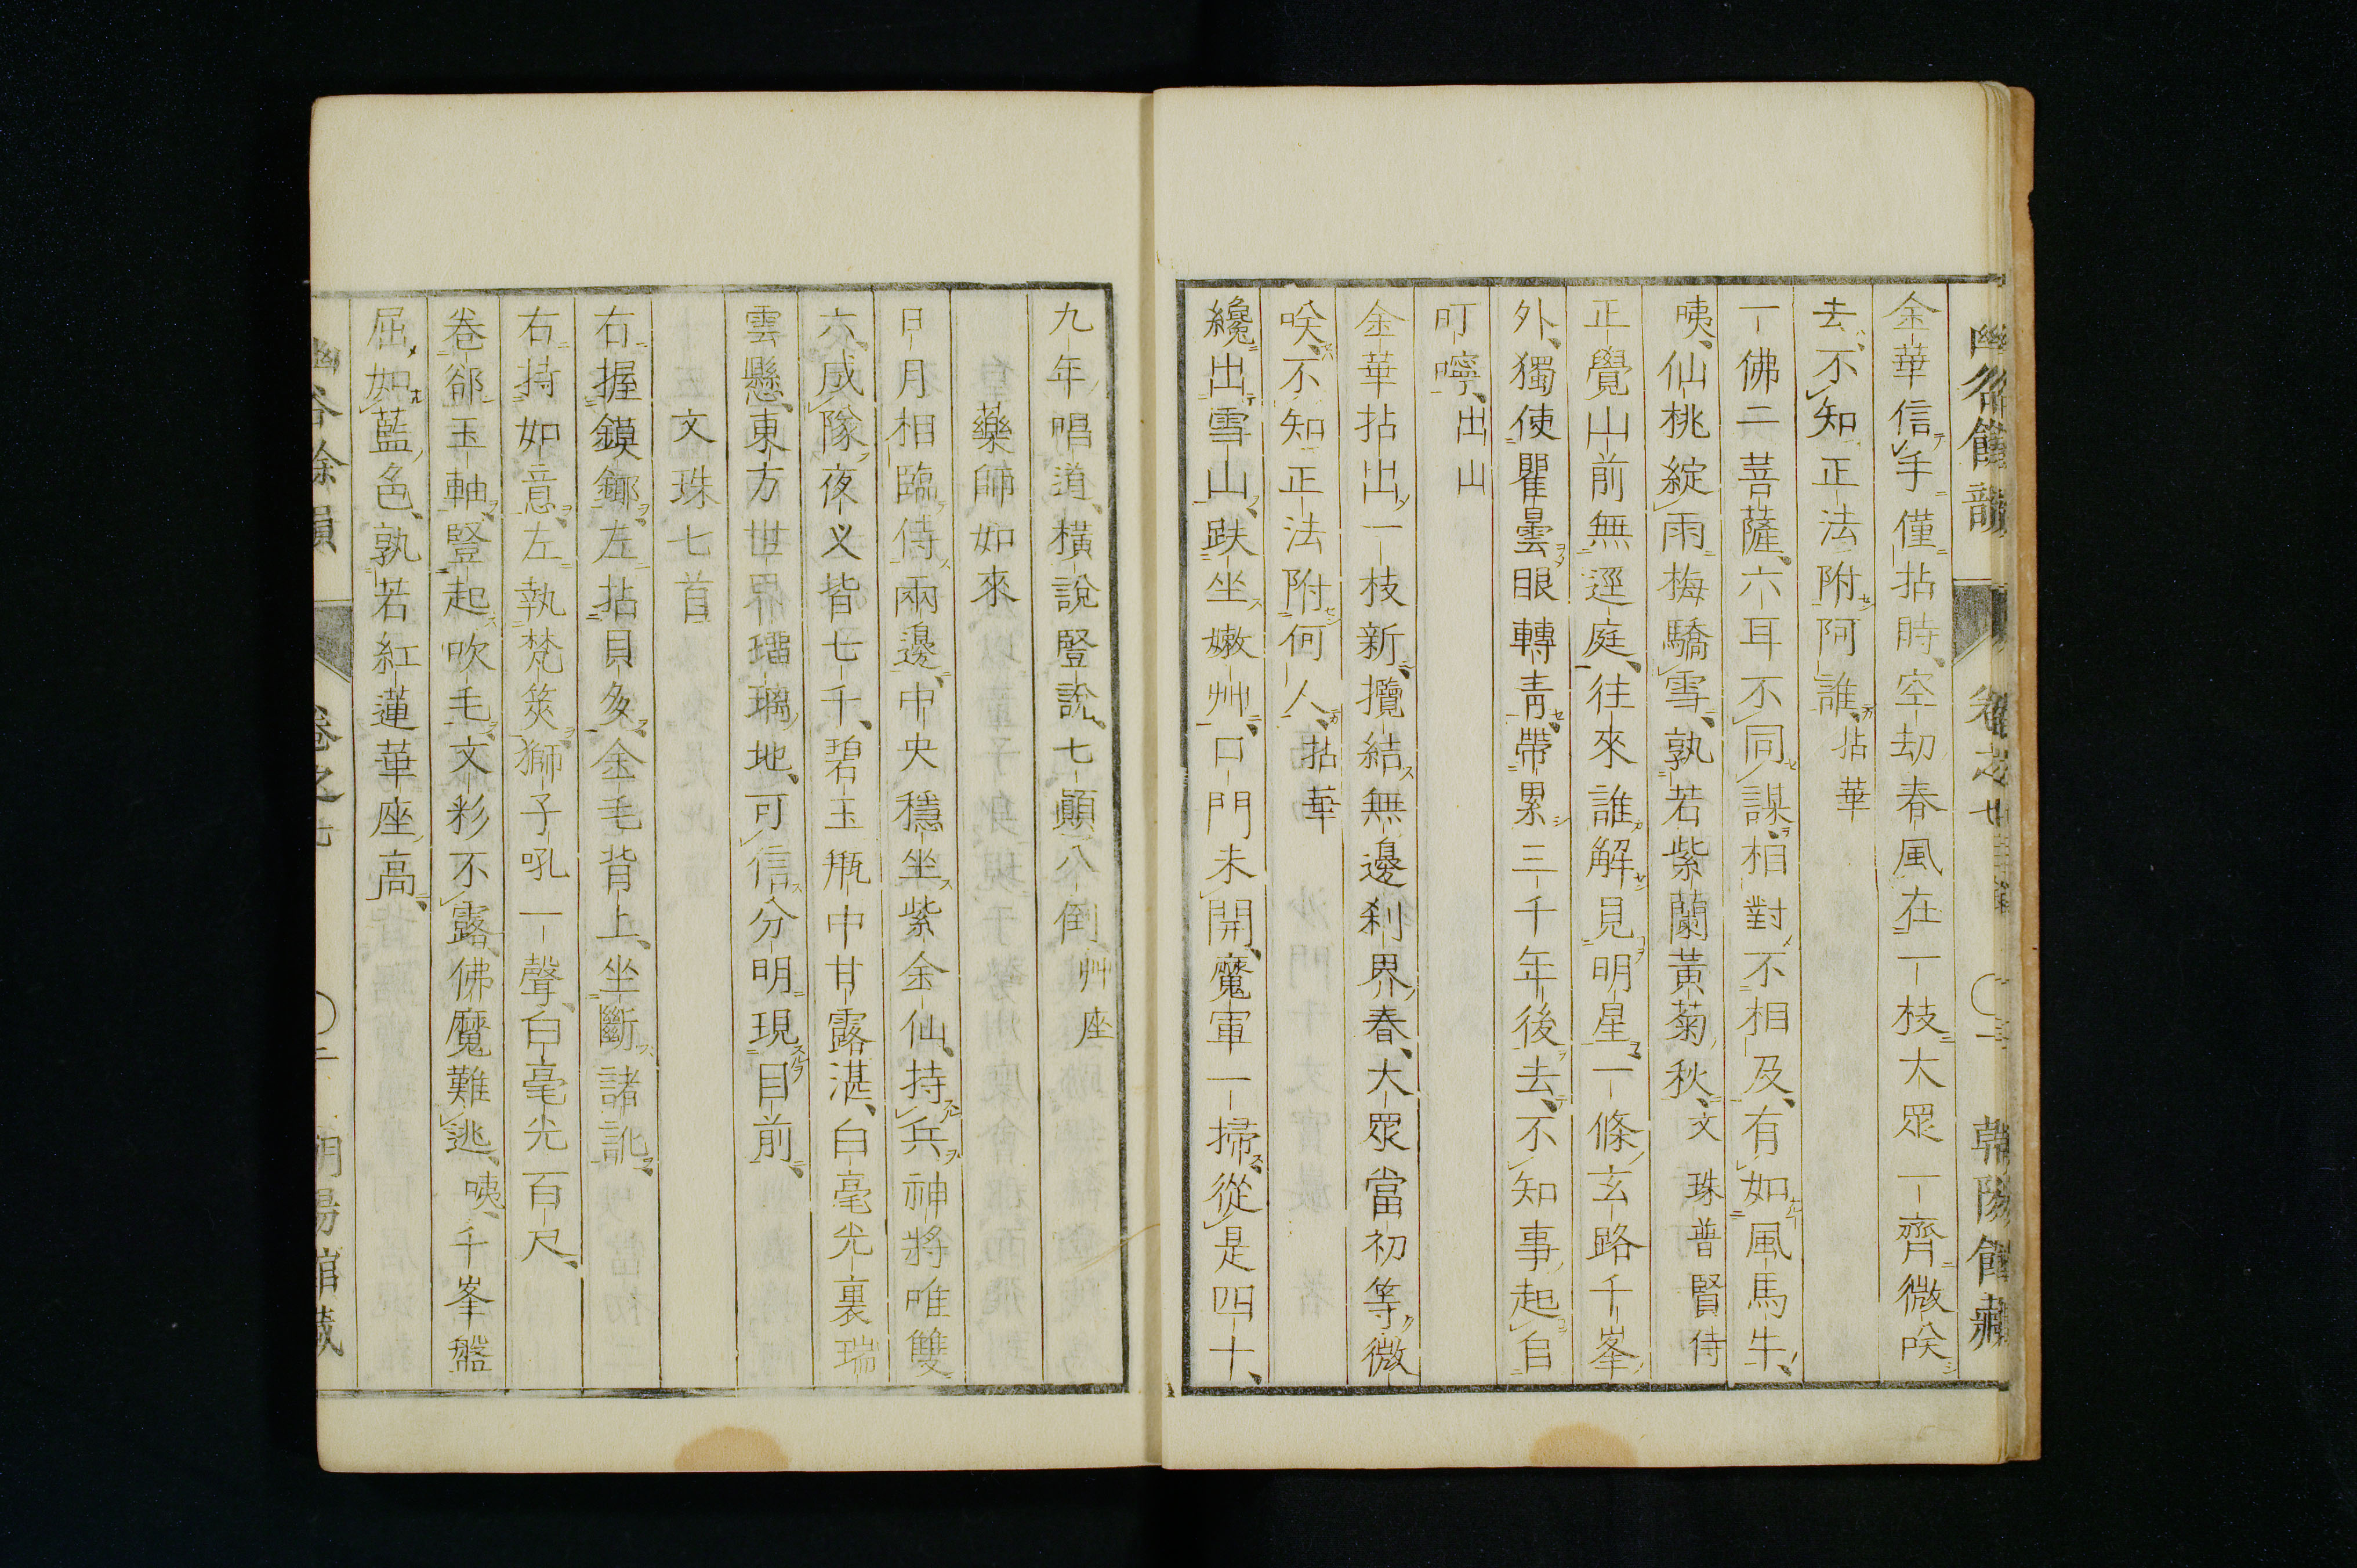 金華信手僅拈時空劫春風在一枝大眾一齊微咲
去不知正法附阿誰拈華
一佛二菩薩六耳不同謀相對不相及有如風馬牛
咦仙桃綻雨梅驕雪孰若紫蘭黃菊秋文珠普賢侍
正覺山前無逕庭往來誰解見明星一條玄路千峯
外獨使瞿曇眼轉青帶累三千年後去不知事起自
叮嚀出山
金華拈出一枝新攬結無邊刹界春大眾當初等微
咲不知正法附何人拈華
纔出雪山趺坐嫩艸口門未開魔軍一掃從是四十
九年唱道橫說豎說七顚八倒艸座
藥師如來
日月相臨侍兩邊中央穩坐紫金仙持兵神將唯雙
六咸隊夜义皆七千碧玉甁中甘露湛白毫光裏瑞
雲懸東方世界瑠璃地可信分明現目前
文珠七首
右握鏌鎁左拈貝多金毛背上坐斷諸訛
右持如意左執梵筴獅子吼一聲白毫光百尺
卷郤玉軸豎起吹毛文彩不露佛魔難逃咦千峯盤
屈如藍色孰若紅蓮華座高